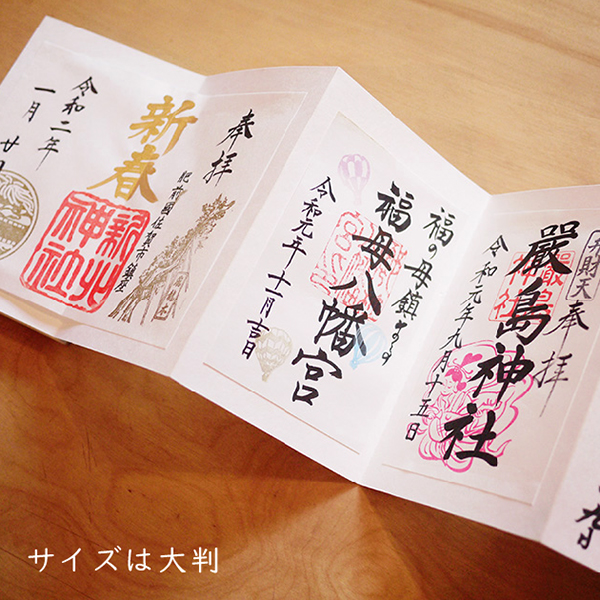 弁財天
奉拝
嚴島神社
令和元年九月十五日
福の母鎮守の
福母八幡宮
令和元年十一月吉日
奉拝
肥前國佐賀市鎮座
新春
令和二年
一月廿
サイズは大判